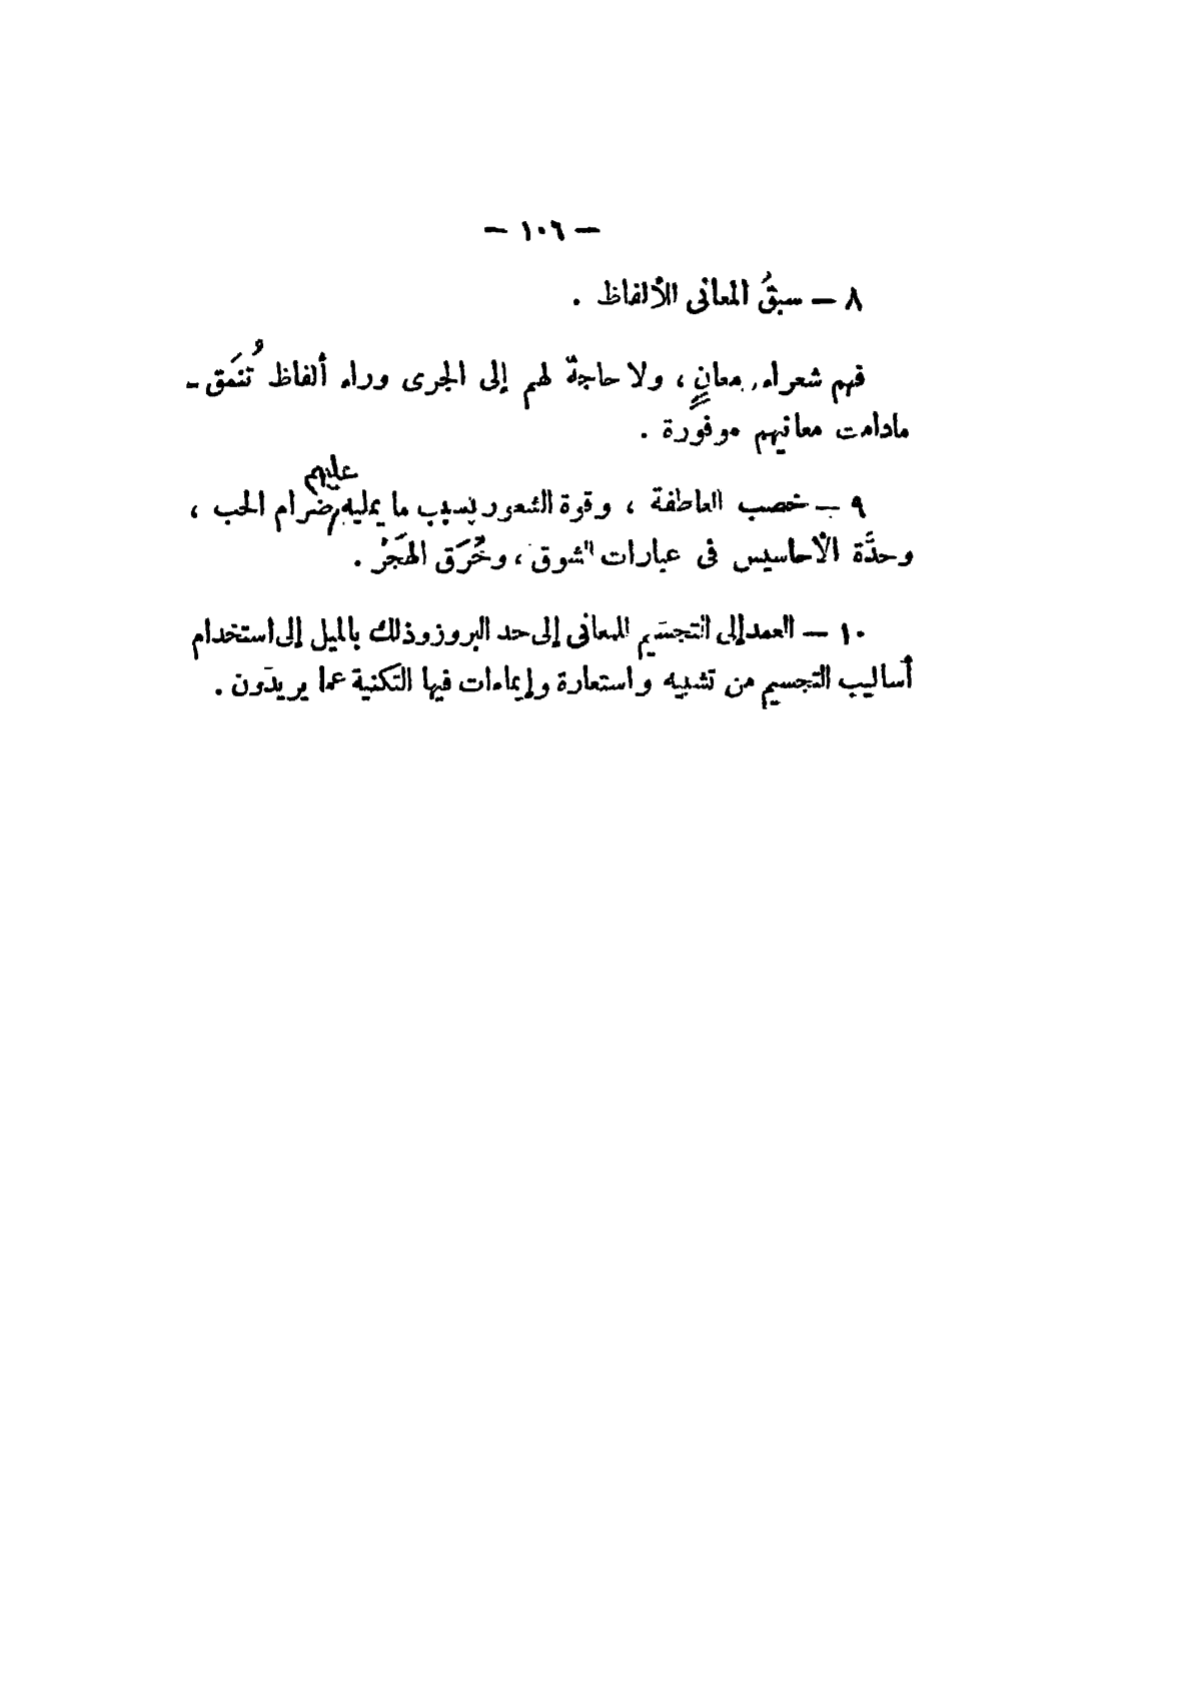 — ١٠٦ —
٨ — سبقُ المعانى الألفاظ .
فهم شعراء معانٍ ، ولا حاجة لهم إلى الجرى وراء ألفاظ تُنمَق -
مادامت معانيهم موفورة .
عليهم
٩ — خصب العاطفة ، وقوة الشعور بسبب ما يمليه ضرام الحب ،
وحدَّة الأحاسيس فى عبارات الشوق ، وحُرَق الهَجَرْ .
١٠ — العمد إلى التجسيم المعانى إلى حد البروز وذلك بالميل إلى استخدام
أساليب التجسيم من تشبيه واستعارة وإيماءات فيها التكنية عما يريدون .